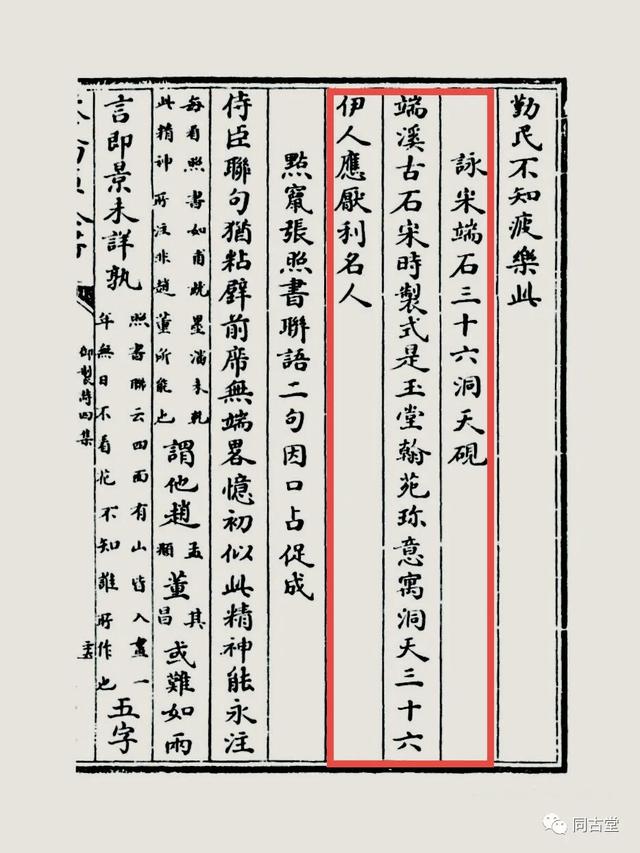 勤民不知疲樂此
詠宋端石三十六洞天硯
端溪古石宋時製式是玉堂翰苑珎意寓洞天三十六
伊人應厭利名人
點竄張照書聯語二句因口占促成
侍臣聯句猶粘壁前席無端畧憶初似此精神能永注
每看照書如甫脫墨瀋未乾
此精神所注非趙董所能也
謂他趙孟頫董其昌或難如兩
言即景未詳孰
照書聯云四面有山皆入畫一
年無日不看花不知誰所作也
五字
御製詩四集
同古堂